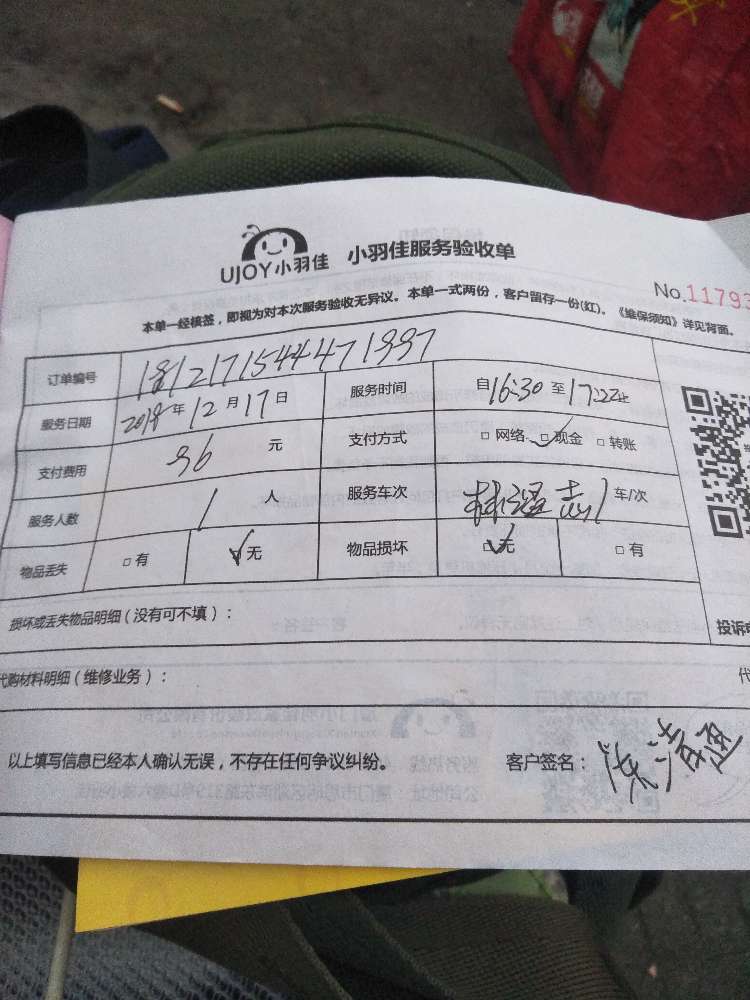 UJOY小羽佳 小羽佳服务验收单
No.11793
本单一经核签，即视为对本次服务验收无异议。本单一式两份，客户留存一份(红)。《维保须知》详见背面。
订单编号 1812171544471997
服务日期 2018年12月17日 服务时间 自16:30至17:22止
支付费用 96 元 支付方式 □网络 ☑现金 □转账
服务人数 1 人 服务车次 林 志 1 车/次
物品丢失 □有 ☑无 物品损坏 ☑无 □有
损坏或丢失物品明细（没有可不填）：
投诉
代购材料明细（维修业务）：
代
以上填写信息已经本人确认无误，不存在任何争议纠纷。 客户签名： 清通